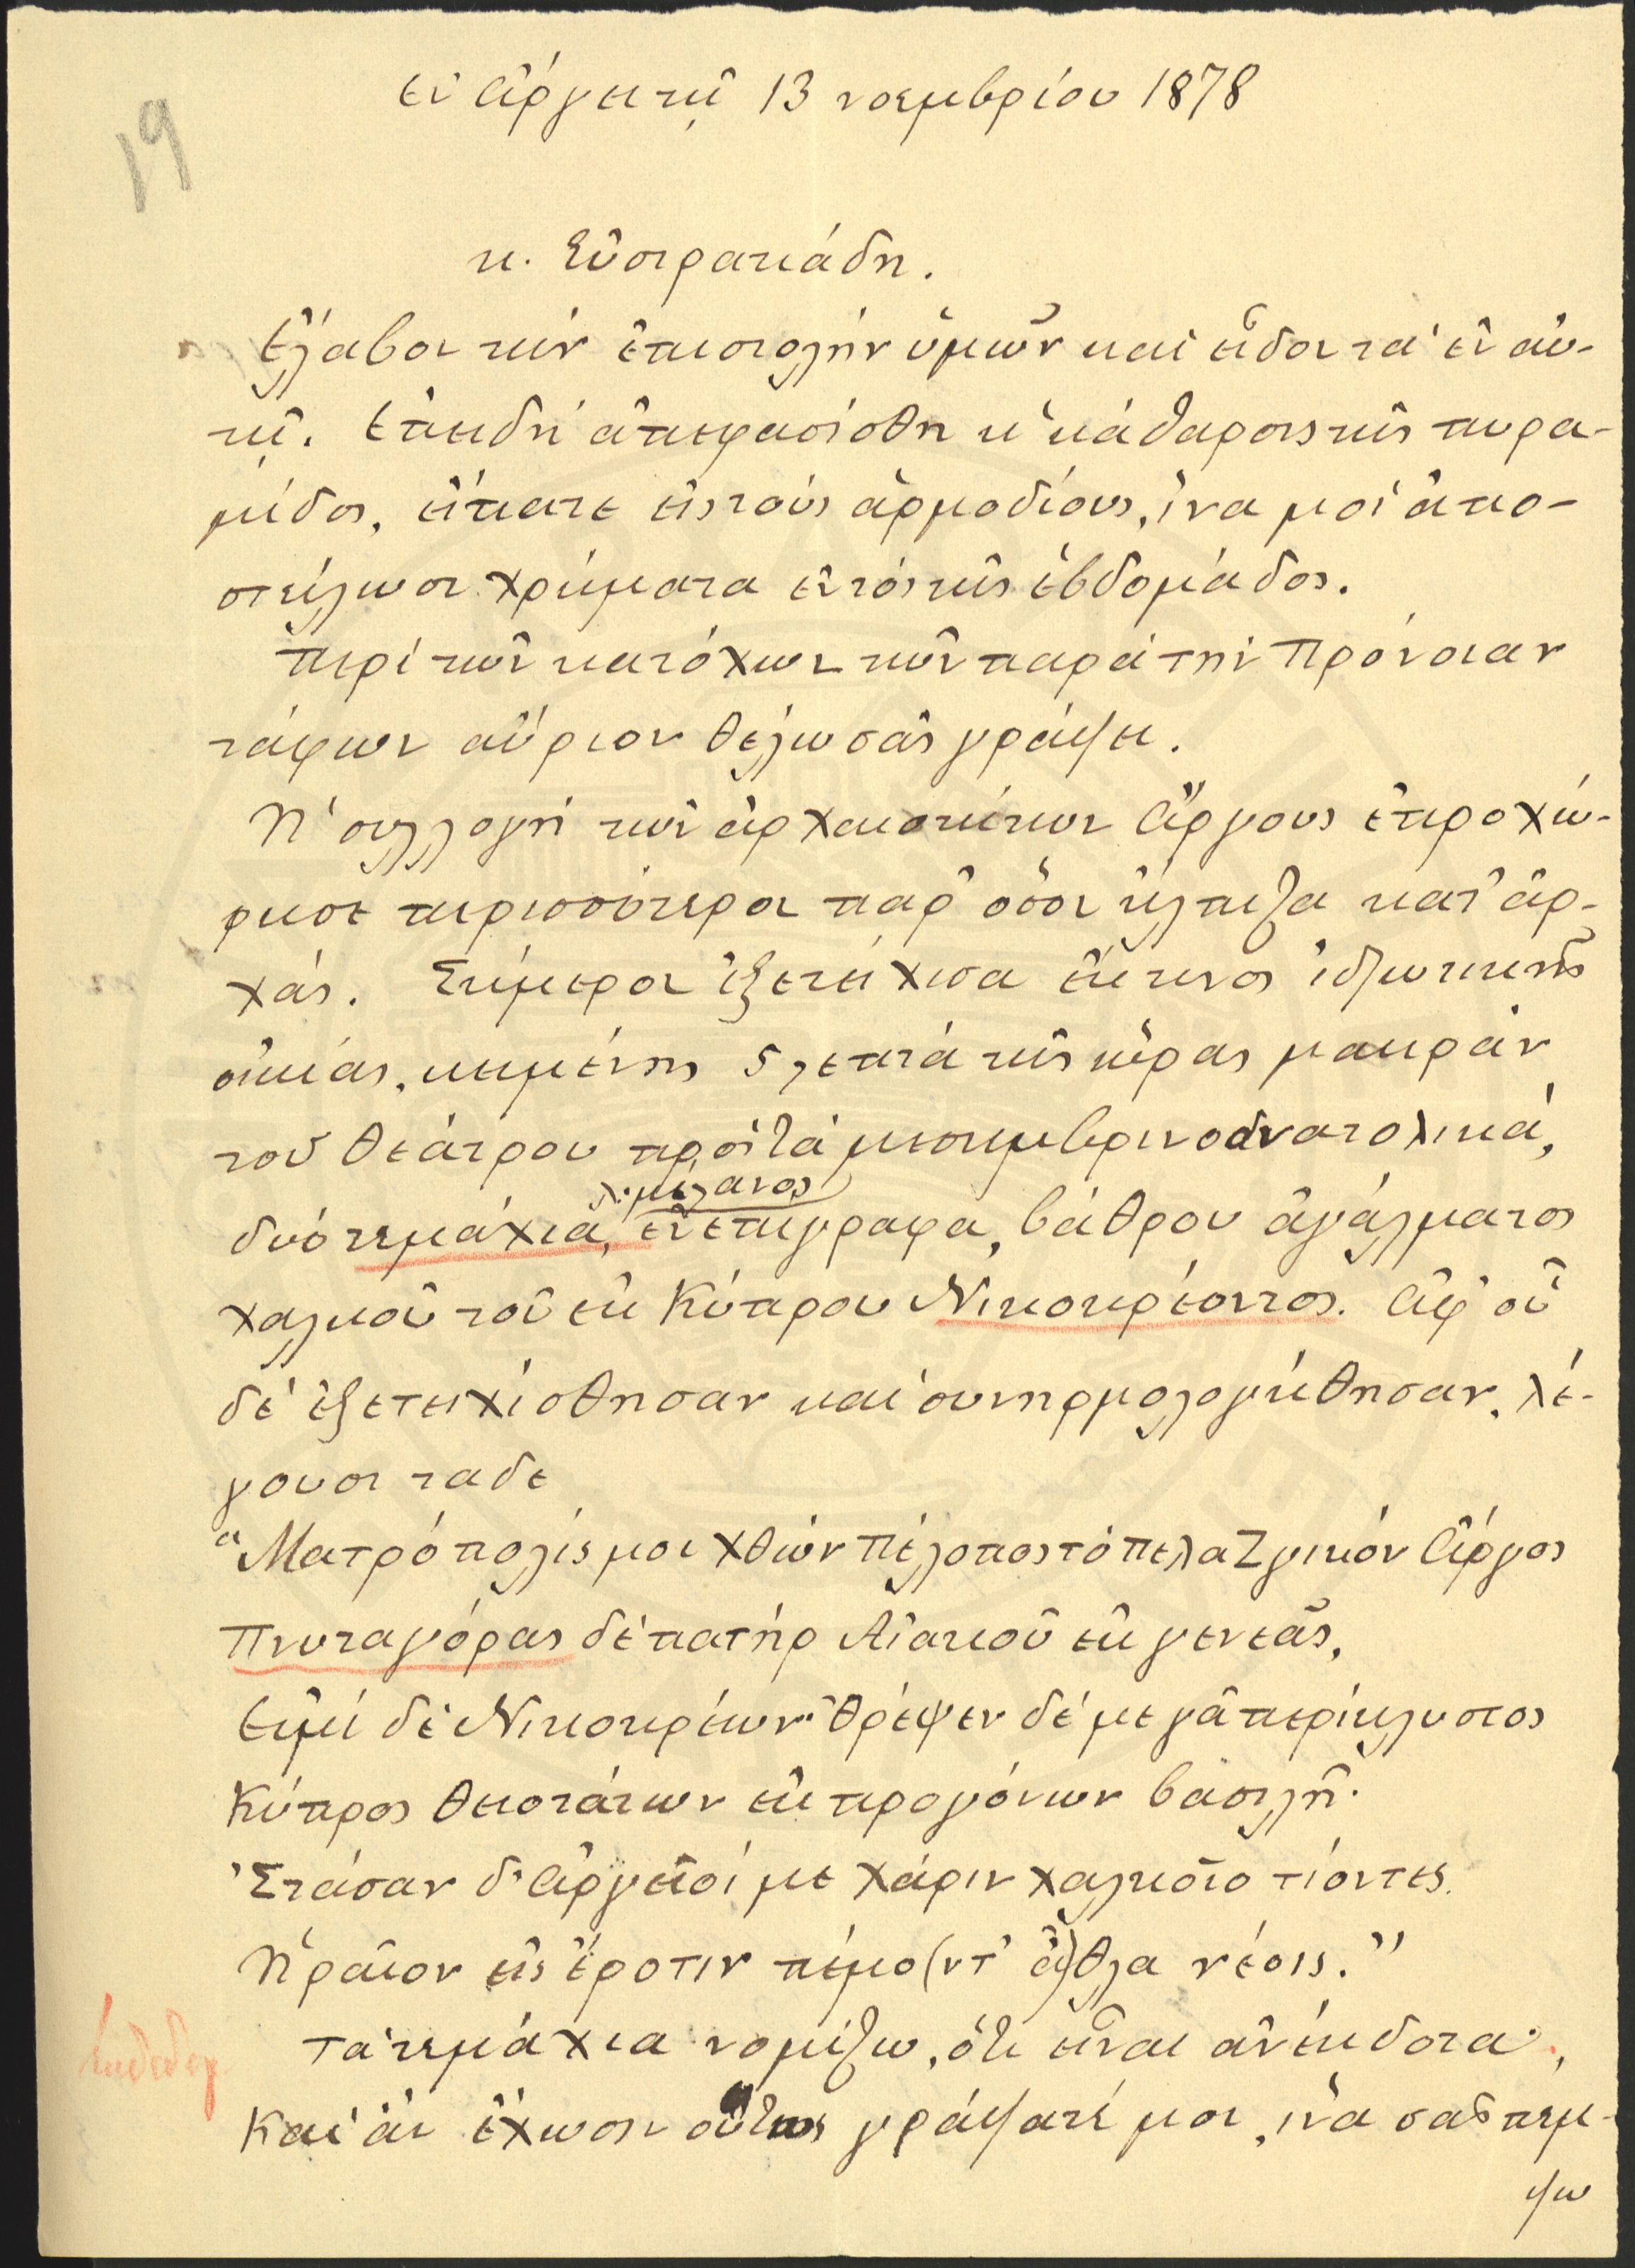 19
ἐν Ἄργει τῇ 13 νοεμβρίου 1878
κ. Εὐστρατιάδη.
Ἔλαβον τὴν ἐπιστολὴν ὑμῶν καὶ εἶδον τὰ ἐν αὐ-
τῇ. Ἐπειδὴ ἀπεφασίσθη ἡ κάθαρσις τῆς πυρα-
μίδος, εἴπατε εἰς τοὺς ἁρμοδίους, ἵνα μοὶ ἀπο-
στείλωσι χρήματα ἐντὸς τῆς ἑβδομάδος.
Περὶ τῶν κατόχων τῶν παρὰ τὴν Πρόνοιαν
τάφων αὔριον θέλω σᾶς γράψει.
Ἡ συλλογὴ τῶν ἀρχαιοτήτων Ἄργους ἐπροχώ-
ρησε περισσότερον παρ' ὅσον ἤλπιζα κατ' ἀρ-
χάς. Σήμερον ἐξετείχισα ἔκ τινος ἰδιωτικῆς
οἰκίας, κειμένης 5 λεπτὰ τῆς ὥρας μακρὰν
τοῦ θεάτρου πρὸς τὰ μεσημβρινοανατολικά,
λ. μέλανος
δυὸ τεμάχια, ἐνεπίγραφα, βάθρου ἀγάλματος
χαλκοῦ τοῦ ἐκ Κύπρου Νικοκρέοντος. Ἀφ' οὗ
δὲ ἐξετειχίσθησαν καὶ συνηρμολογήθησαν, λέ-
γουσι τάδε
"Ματρόπολίς μοι χθὼν Πέλοπος τὸ πελαΖγικὸν Ἄργος
Πνυταγόρας δὲ πατὴρ Αἰακοῦ ἐκ γενεᾶς,
Εἰμὶ δὲ Νικοκρέων· θρέψεν δέ με γᾶ περίκλυστος
Κύπρος θειοτάτων ἐκ προγόνων βασιλῆ·
Στάσαν δ' Ἀργεῖοί με χάριν χαλκοῖο τίοντες.
Ἥραιον εἰς ἔροτιν πέμπο(ντ' ἄ)θλα νέοις."
Τὰ τεμάχια νομίζω, ὅτι εἶναι ἀνέκδοτα·,
καὶ ἂν ἔχωσιν οὕτως γράψατέ μοι, ἵνα σᾶς πέμ-
ψω